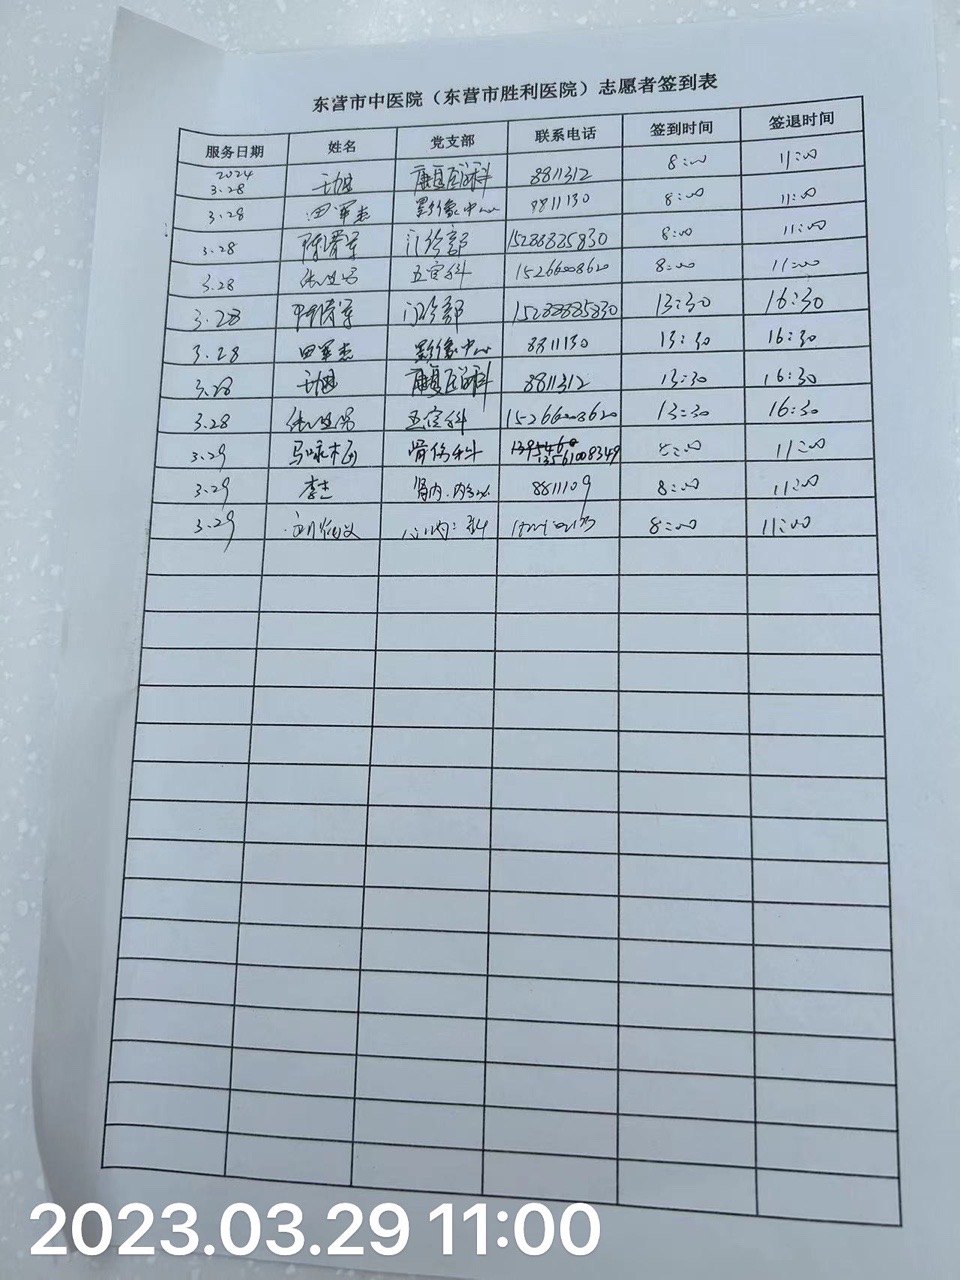 东营市中医院（东营市胜利医院）志愿者签到表
服务日期 姓名 党支部 联系电话 签到时间 签退时间
2024 3.28 康复医学科 8811312 8:00 11:00
3.28 田军志 影像中心 8811130 8:00 11:00
3.28 门诊部 15288885830 8:00 11:00
3.28 五官科 15266008620 8:00 11:00
3.28 门诊部 15288885830 13:30 16:30
3.28 田军志 影像中心 8811130 13:30 16:30
3.28 康复医学科 8811312 13:30 16:30
3.28 五官科 15266008620 13:30 16:30
3.29 马咏梅 骨伤科 13561008349 8:00 11:00
3.29 李杰 肾内.内分泌 8811109 8:00 11:00
3.29 心内二科 8:00 11:00
2023.03.29 11:00